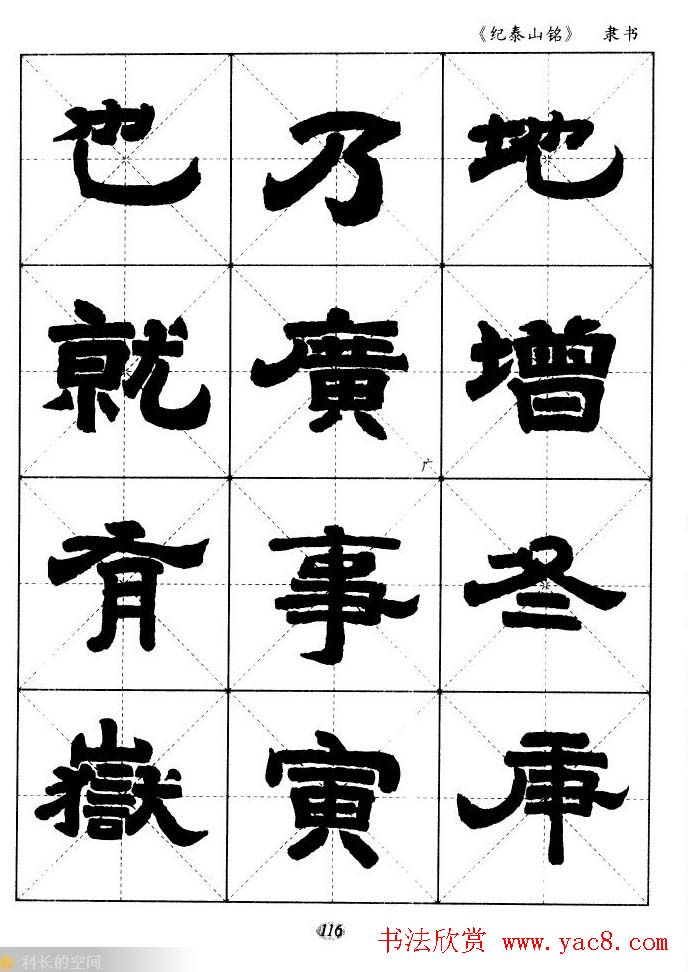 《纪泰山铭》 隶书
地增冬庚
乃廣事寅
也就有嶽
广
116
书法欣赏 www.yac8.com
科长的空间